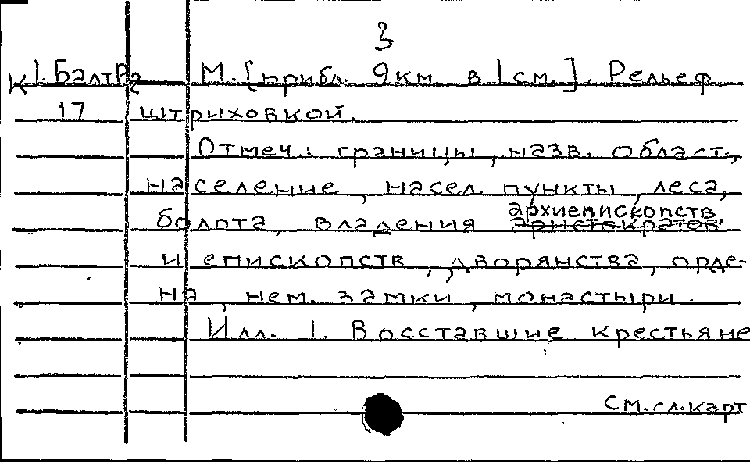 3
К 1. БалтРг М. [прибл. 9км в 1см.]. Рельеф
17 штриховкой.
Отмеч.: границы, назв. област.,
население, насел. пункты, леса,
архиепископств,
болота, владения аристократов,
и епископств, дворянства, орде-
на, нем. замки, монастыри.
Илл. 1. Восставшие крестьяне
см. сл. карт